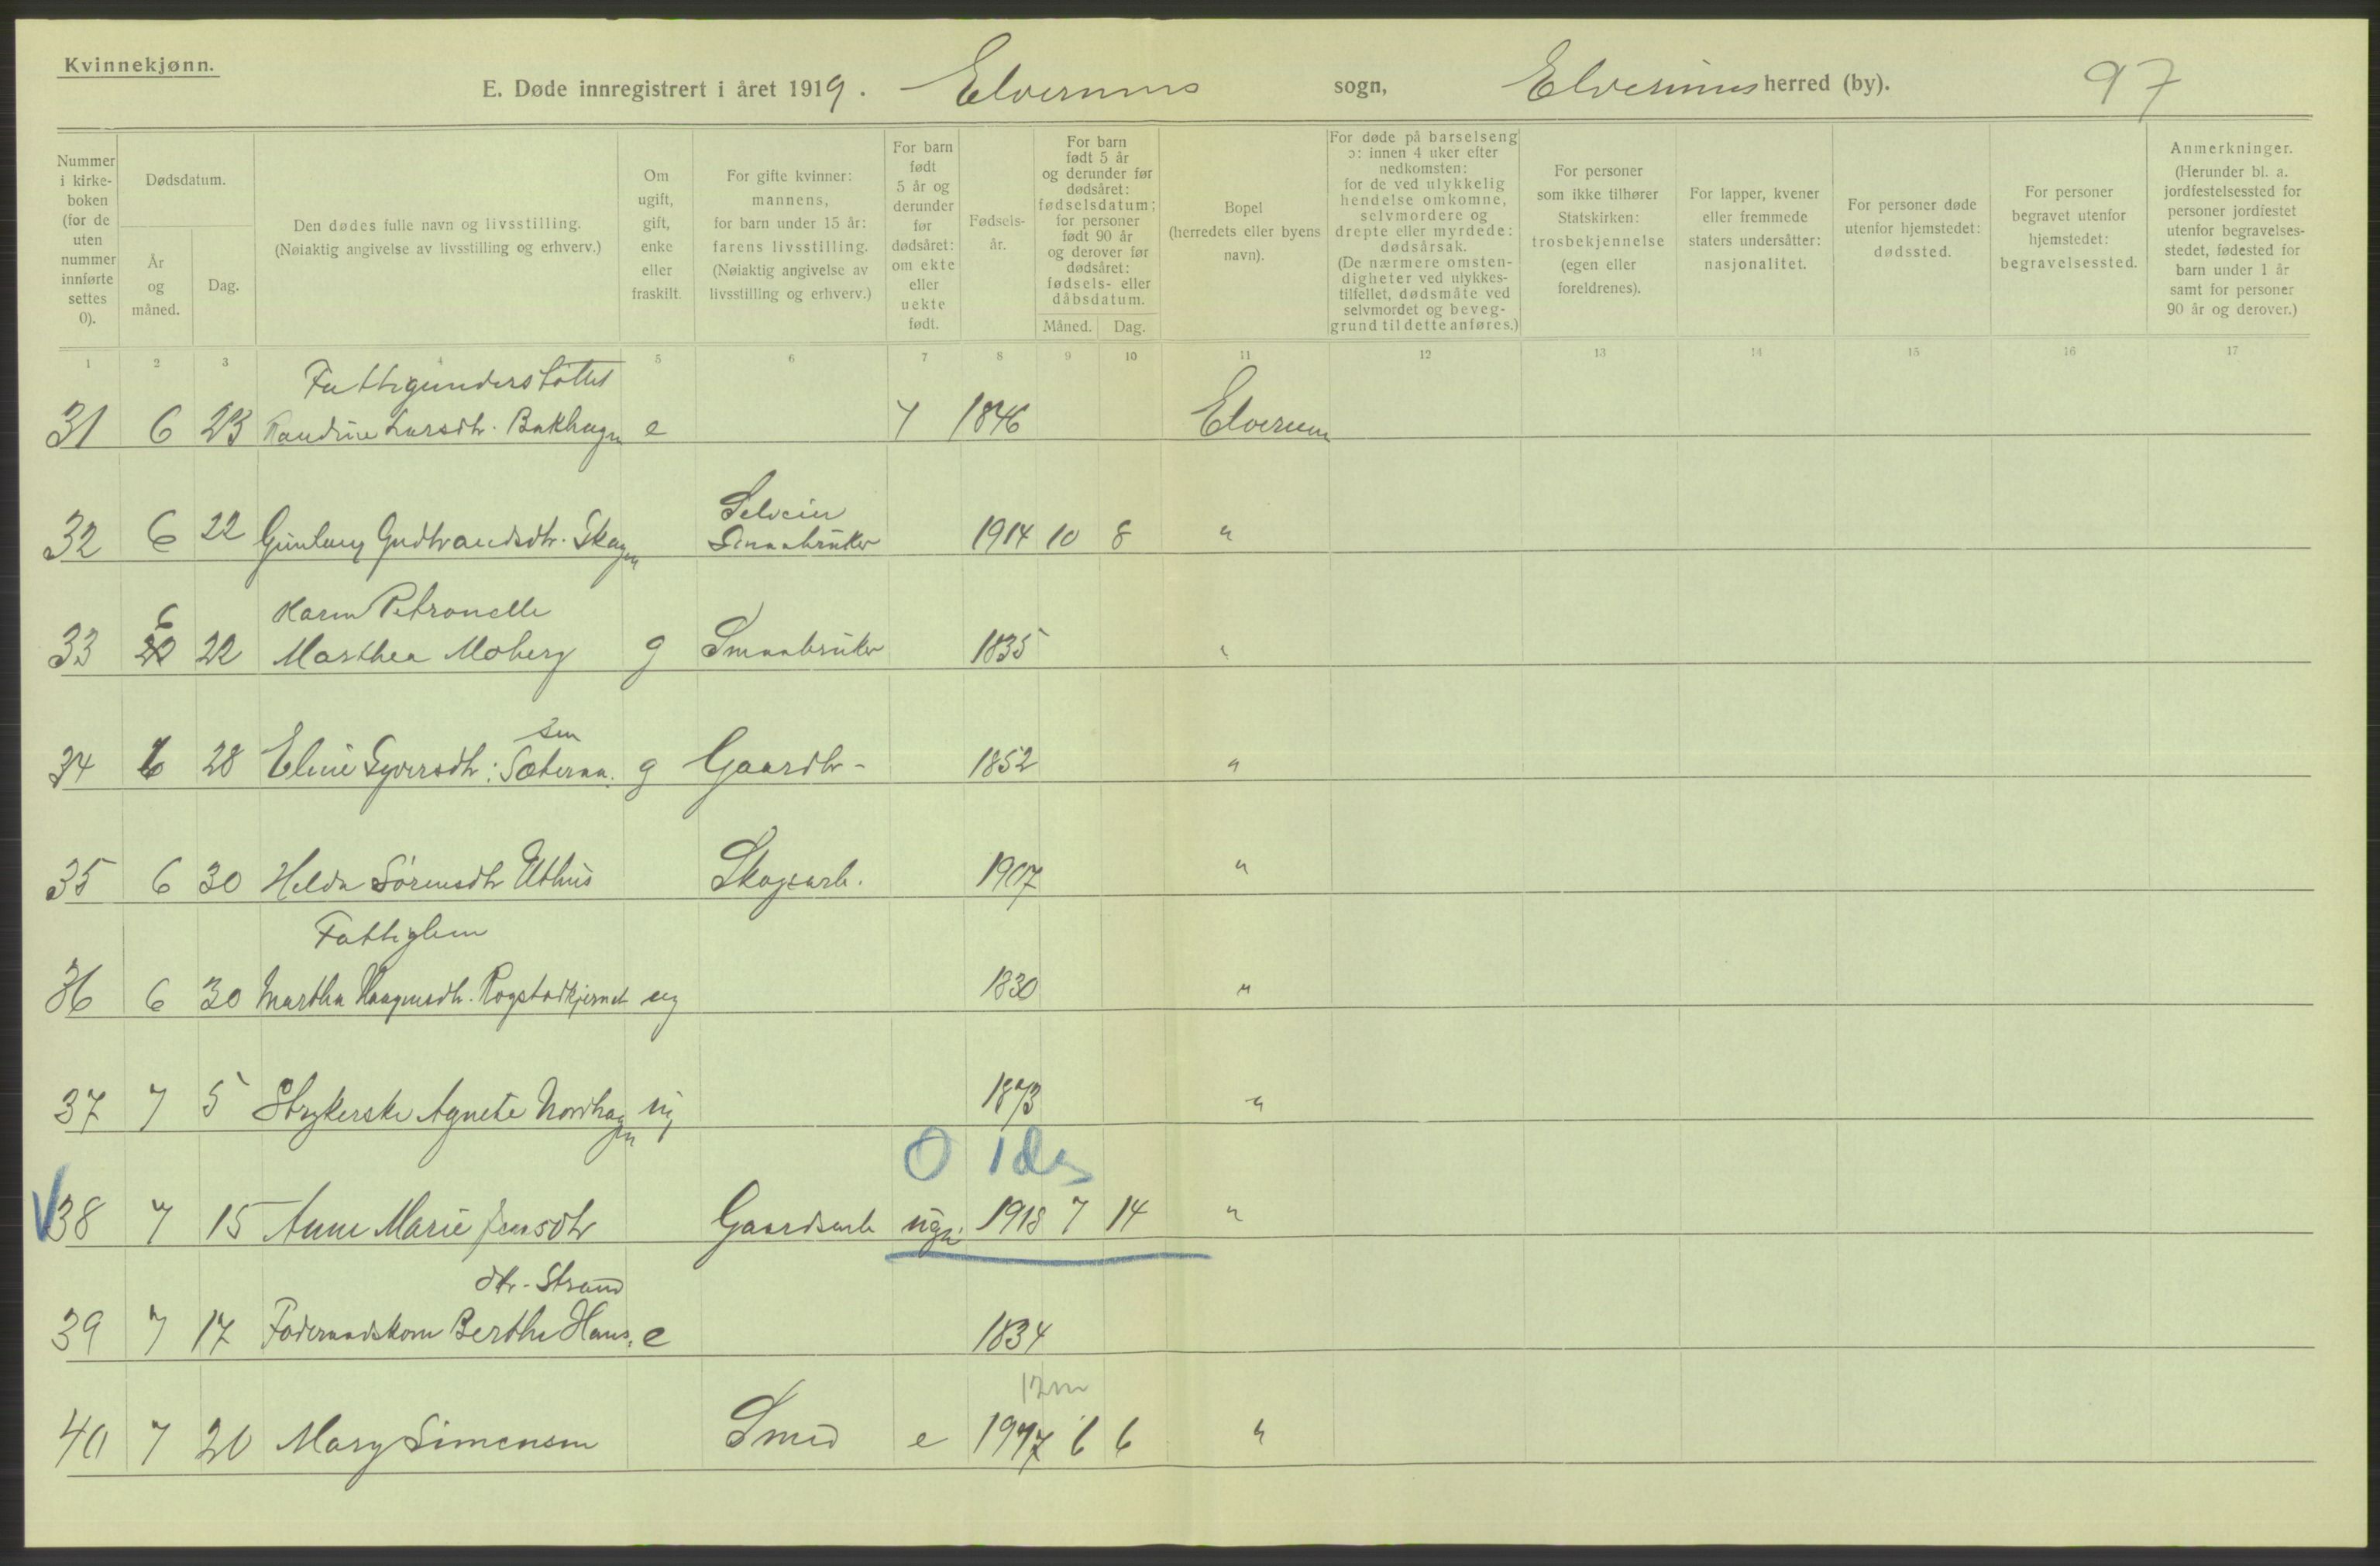 Kvinnekjønn.
E. Døde innregistrert i året 1919. Elverums sogn, Elverums herred (by). 97
Nummer i kirke- boken (for de uten nummer innførte settes 0).
Dødsdatum.
År og måned.
Dag.
Den dødes fulle navn og livsstilling. (Nøiaktig angivelse av livsstilling og erhverv.)
Om ugift, gift, enke eller fraskilt.
For gifte kvinner: mannens, for barn under 15 år: farens livsstilling. (Nøiaktig angivelse av livsstilling og erhverv.)
For barn født 5 år og derunder før dødsåret: om ekte eller uekte født.
Fødsels- år.
For barn født 5 år og derunder før dødsåret: fødselsdatum; for personer født 90 år og derover før dødsåret: fødsels- eller dåbsdatum.
Måned.
Dag.
Bopel (herredets eller byens navn).
For døde på barselseng ɔ: innen 4 uker efter nedkomsten: for de ved ulykkelig hendelse omkomne, selvmordere og drepte eller myrdede: dødsårsak. (De nærmere omsten- digheter ved ulykkes- tilfellet, dødsmåte ved selvmordet og beveg- grund til dette anføres.)
For personer som ikke tilhører Statskirken: trosbekjennelse (egen eller foreldrenes).
For lapper, kvener eller fremmede staters undersåtter: nasjonalitet.
For personer døde utenfor hjemstedet: dødssted.
For personer begravet utenfor hjemstedet: begravelsessted.
Anmerkninger. (Herunder bl. a. jordfestelsessted for personer jordfestet utenfor begravelses- stedet, fødested for barn under 1 år samt for personer 90 år og derover.)
1 2 3 4 5 6 7 8 9 10 11 12 13 14 15 16 17
Fattigunderstøttet
31 6 23 Randine Larsdtr. Bakhagen e 7 1846 Elverum
Selveier
32 6 22 Gunlaug Gudbrandsdtr. Skagen Smaabruker 1914 10 8 "
6 Karen Petronelle
33 22 Marthea Moberg g Smaabruker 1835 "
sen
34 6 28 Eline Syversdtr: Sæteraa. g Gaardbr- 1852 "
35 6 30 Helda Sørensdtr Uthus Skogsarb. 1907 "
Fattiglem
36 6 30 Martha Haagensdtr. Rogstadkjernet ug 1830 "
37 7 5 Strykerske Agnete Nordhagen ug 1873 "
0 1 dag
V 38 7 15 Anne Marie Jensdtr Gaardsarb 1918 7 14 "
dtr. Strand
39 7 17 Foderaadskone Berthe Hans. e 1834
12m
40 7 20 Mary Simensen Smed e 1917 6 6 "